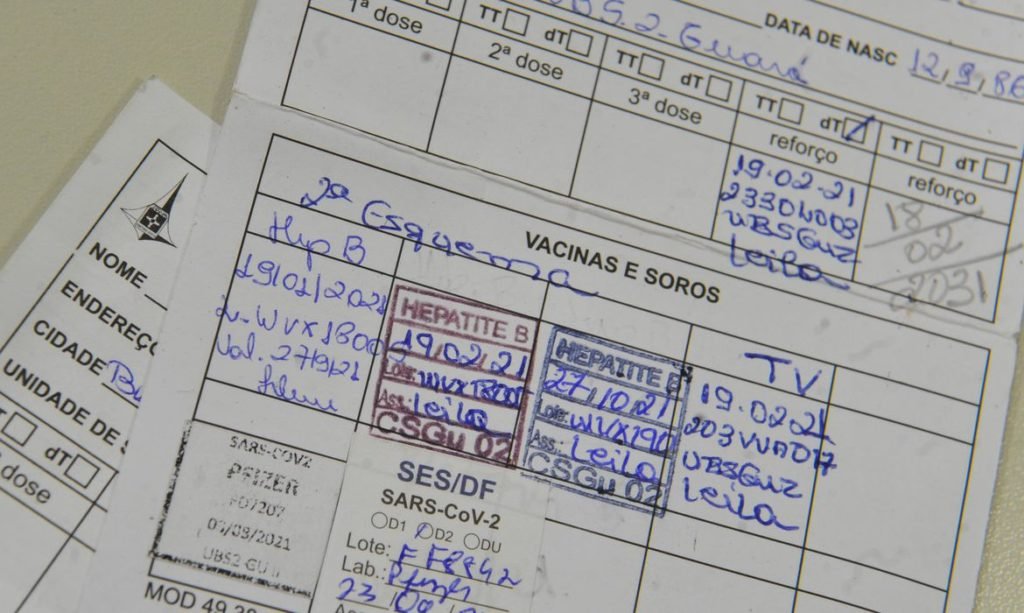 U.B.S. 2 - Guará
DATA DE NASC 12, 9, 86
1ª dose
TT dT
2ª dose
TT dT
3ª dose
TT dT
reforço
19.02-21
UBSGUZ
Leila
TT dT
reforço
18
02
2031
VACINAS E SOROS
2ª Esquema
Hep B
19/01/2021
Val. 27/9/21
HEPATITE B
19/02/21
Lote:
Ass.: Leila
CSGu 02
HEPATITE B
27/10/21
Lote: WVX190
Ass.: Leila
CSGu 02
TV
19.02.21
UBSGUZ
Leila
SARS-COV2
PFIZER
UBS2-GU
SES/DF
SARS-CoV-2
D1 D2 DU
Lote:
Lab.:
MOD 49
NOME
ENDEREÇO
CIDADE
UNIDADE DE
dT
dose